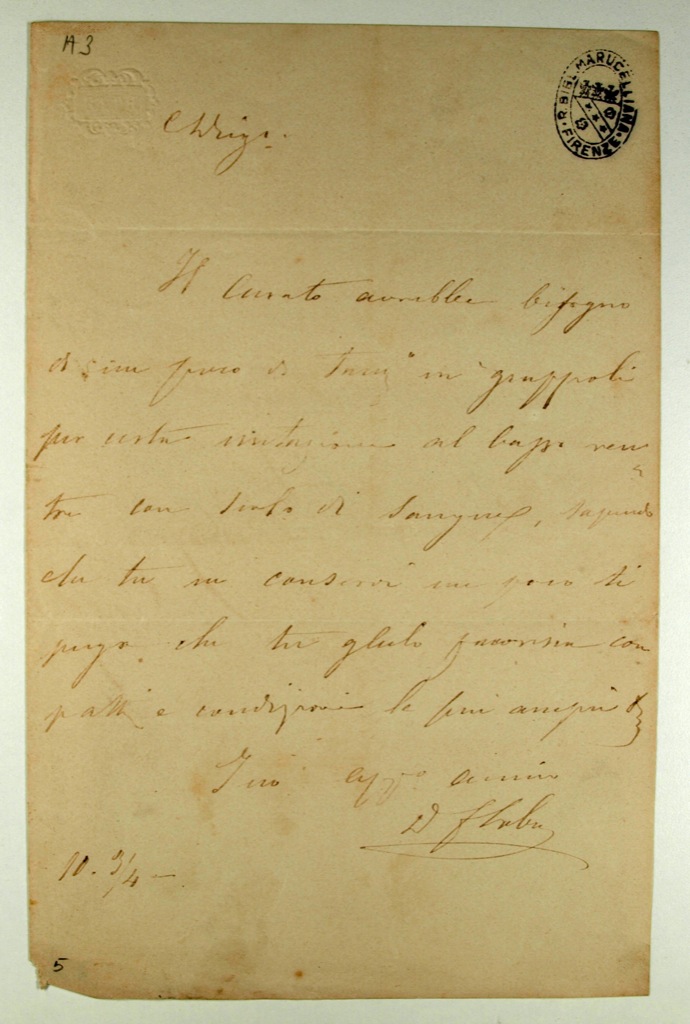 A 3
R. BIBL. MARUCELLIANA • FIRENZE •
Il Curato avrebbe bisogno
di un poco di in gruppoli
per certa irritazione al basso ven
tre con scolo di sangue, sapendo
che tu ne conservi un poco ti
prego che tu glielo favorisca con
patti e condizioni le più ampie
Tuo affmo amico
10. 3/4 –
5